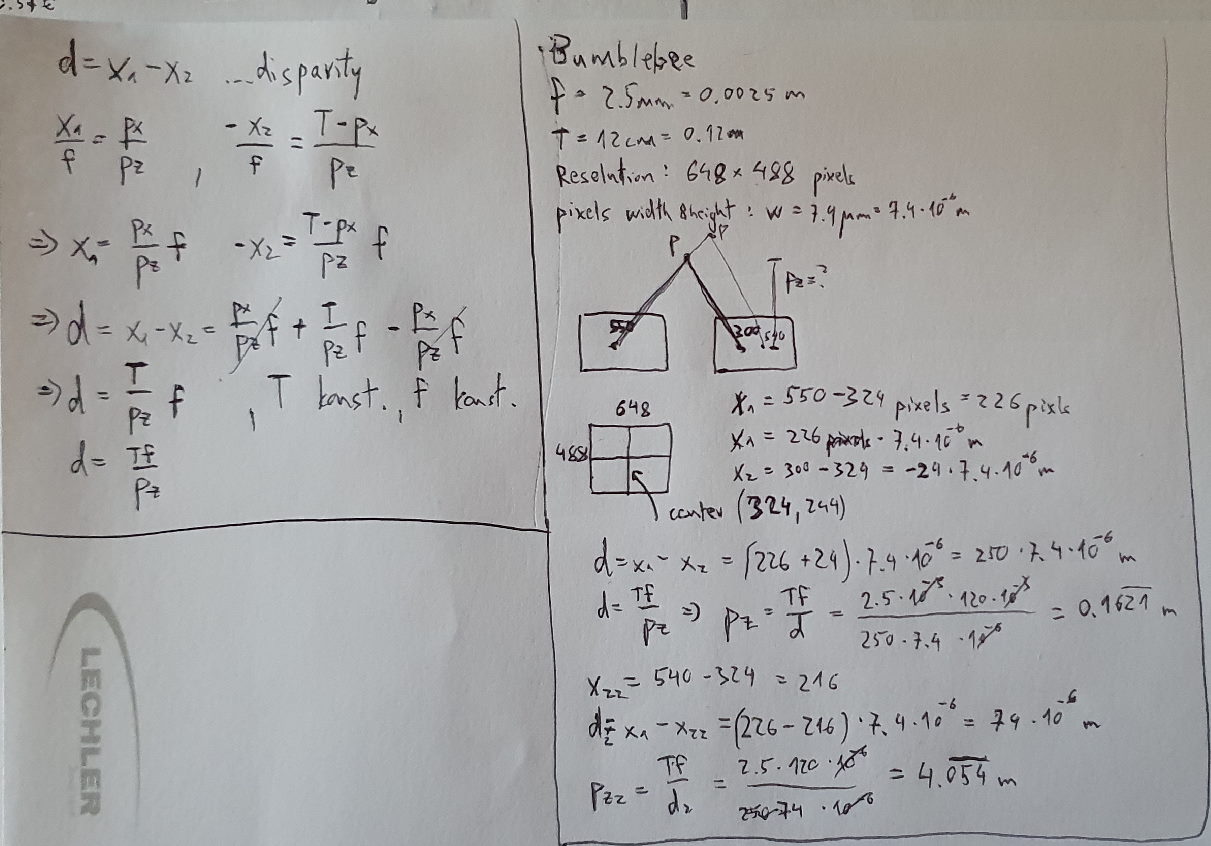 d = x₁ - x₂ ... disparity
x₁/f = px/pz , -x₂/f = (T-px)/pz
⇒ x₁ = px/pz f -x₂ = (T-px)/pz f
⇒ d = x₁ - x₂ = px/pz f + T/pz f - px/pz f
⇒ d = T/pz f , T konst., f konst.
d = Tf/pz
LECHLER
Bumblebee
f = 2.5mm = 0.0025 m
T = 12cm = 0.12m
Resolution: 648 × 488 pixels
pixels width & height: w = 7.4 μm = 7.4·10⁻⁶ m
P P
pz = ?
550 300 540
648
488
center (324, 244)
x₁ = 550 - 324 pixels = 226 pixls
x₁ = 226 pixels · 7.4·10⁻⁶ m
x₂ = 300 - 324 = -24 · 7.4·10⁻⁶ m
d = x₁ - x₂ = (226 + 24) · 7.4·10⁻⁶ = 250 · 7.4·10⁻⁶ m
d = Tf/pz ⇒ pz = Tf/d = (2.5·10⁻³ · 120·10⁻³)/(250 · 7.4 · 10⁻⁶) = 0.1621 m
x₂₂ = 540 - 324 = 216
d₂ = x₁ - x₂₂ = (226 - 216) · 7.4·10⁻⁶ = 74·10⁻⁶ m
pz₂ = Tf/d₂ = (2.5 · 120 · 10⁻⁶)/(250 74 · 10⁻⁶) = 4.054 m